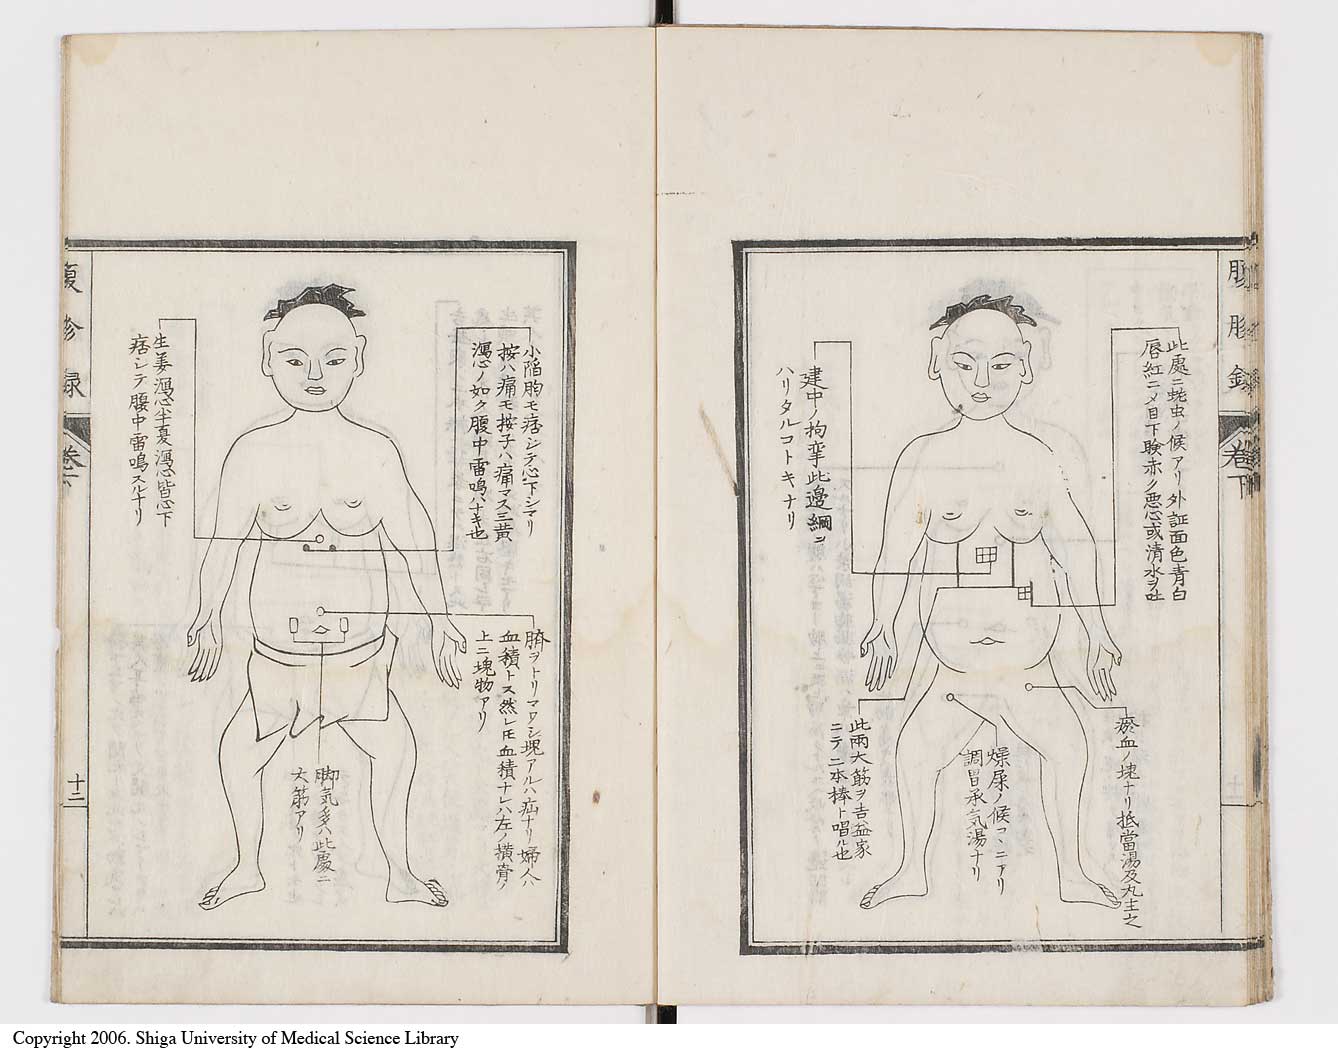 腹胗録
巻下
此處ニ蚘虫ノ候アリ外証面色青白
唇紅ニメ目下瞼赤ク悪心或清水ヲ吐
建中ノ拘挛此邊綱ニ
ハリタルコトキナリ
瘀血ノ塊ナリ抵當湯及丸主之
燥屎ノ候コヽニアリ
調胃承気湯ナリ
此兩大筋ヲ吉益家
ニテ二本棒ト唱ル也
小陥胸モ痞シテ心下シマリ
按ハ痛モ按子ハ痛マス三黄
瀉心ノ如ク腹中雷鳴ハナキ也
臍ヲトリマワシ塊アルハ疝ナリ婦人ハ
血積トス然レ𪜈血積ナレハ左ノ横骨ノ
上ニ塊物アリ
脚気多ハ此處ニ
大筋アリ
生姜瀉心半夏瀉心皆心下
痞シテ腹中雷鳴スルナリ
腹胗録
巻下
十二